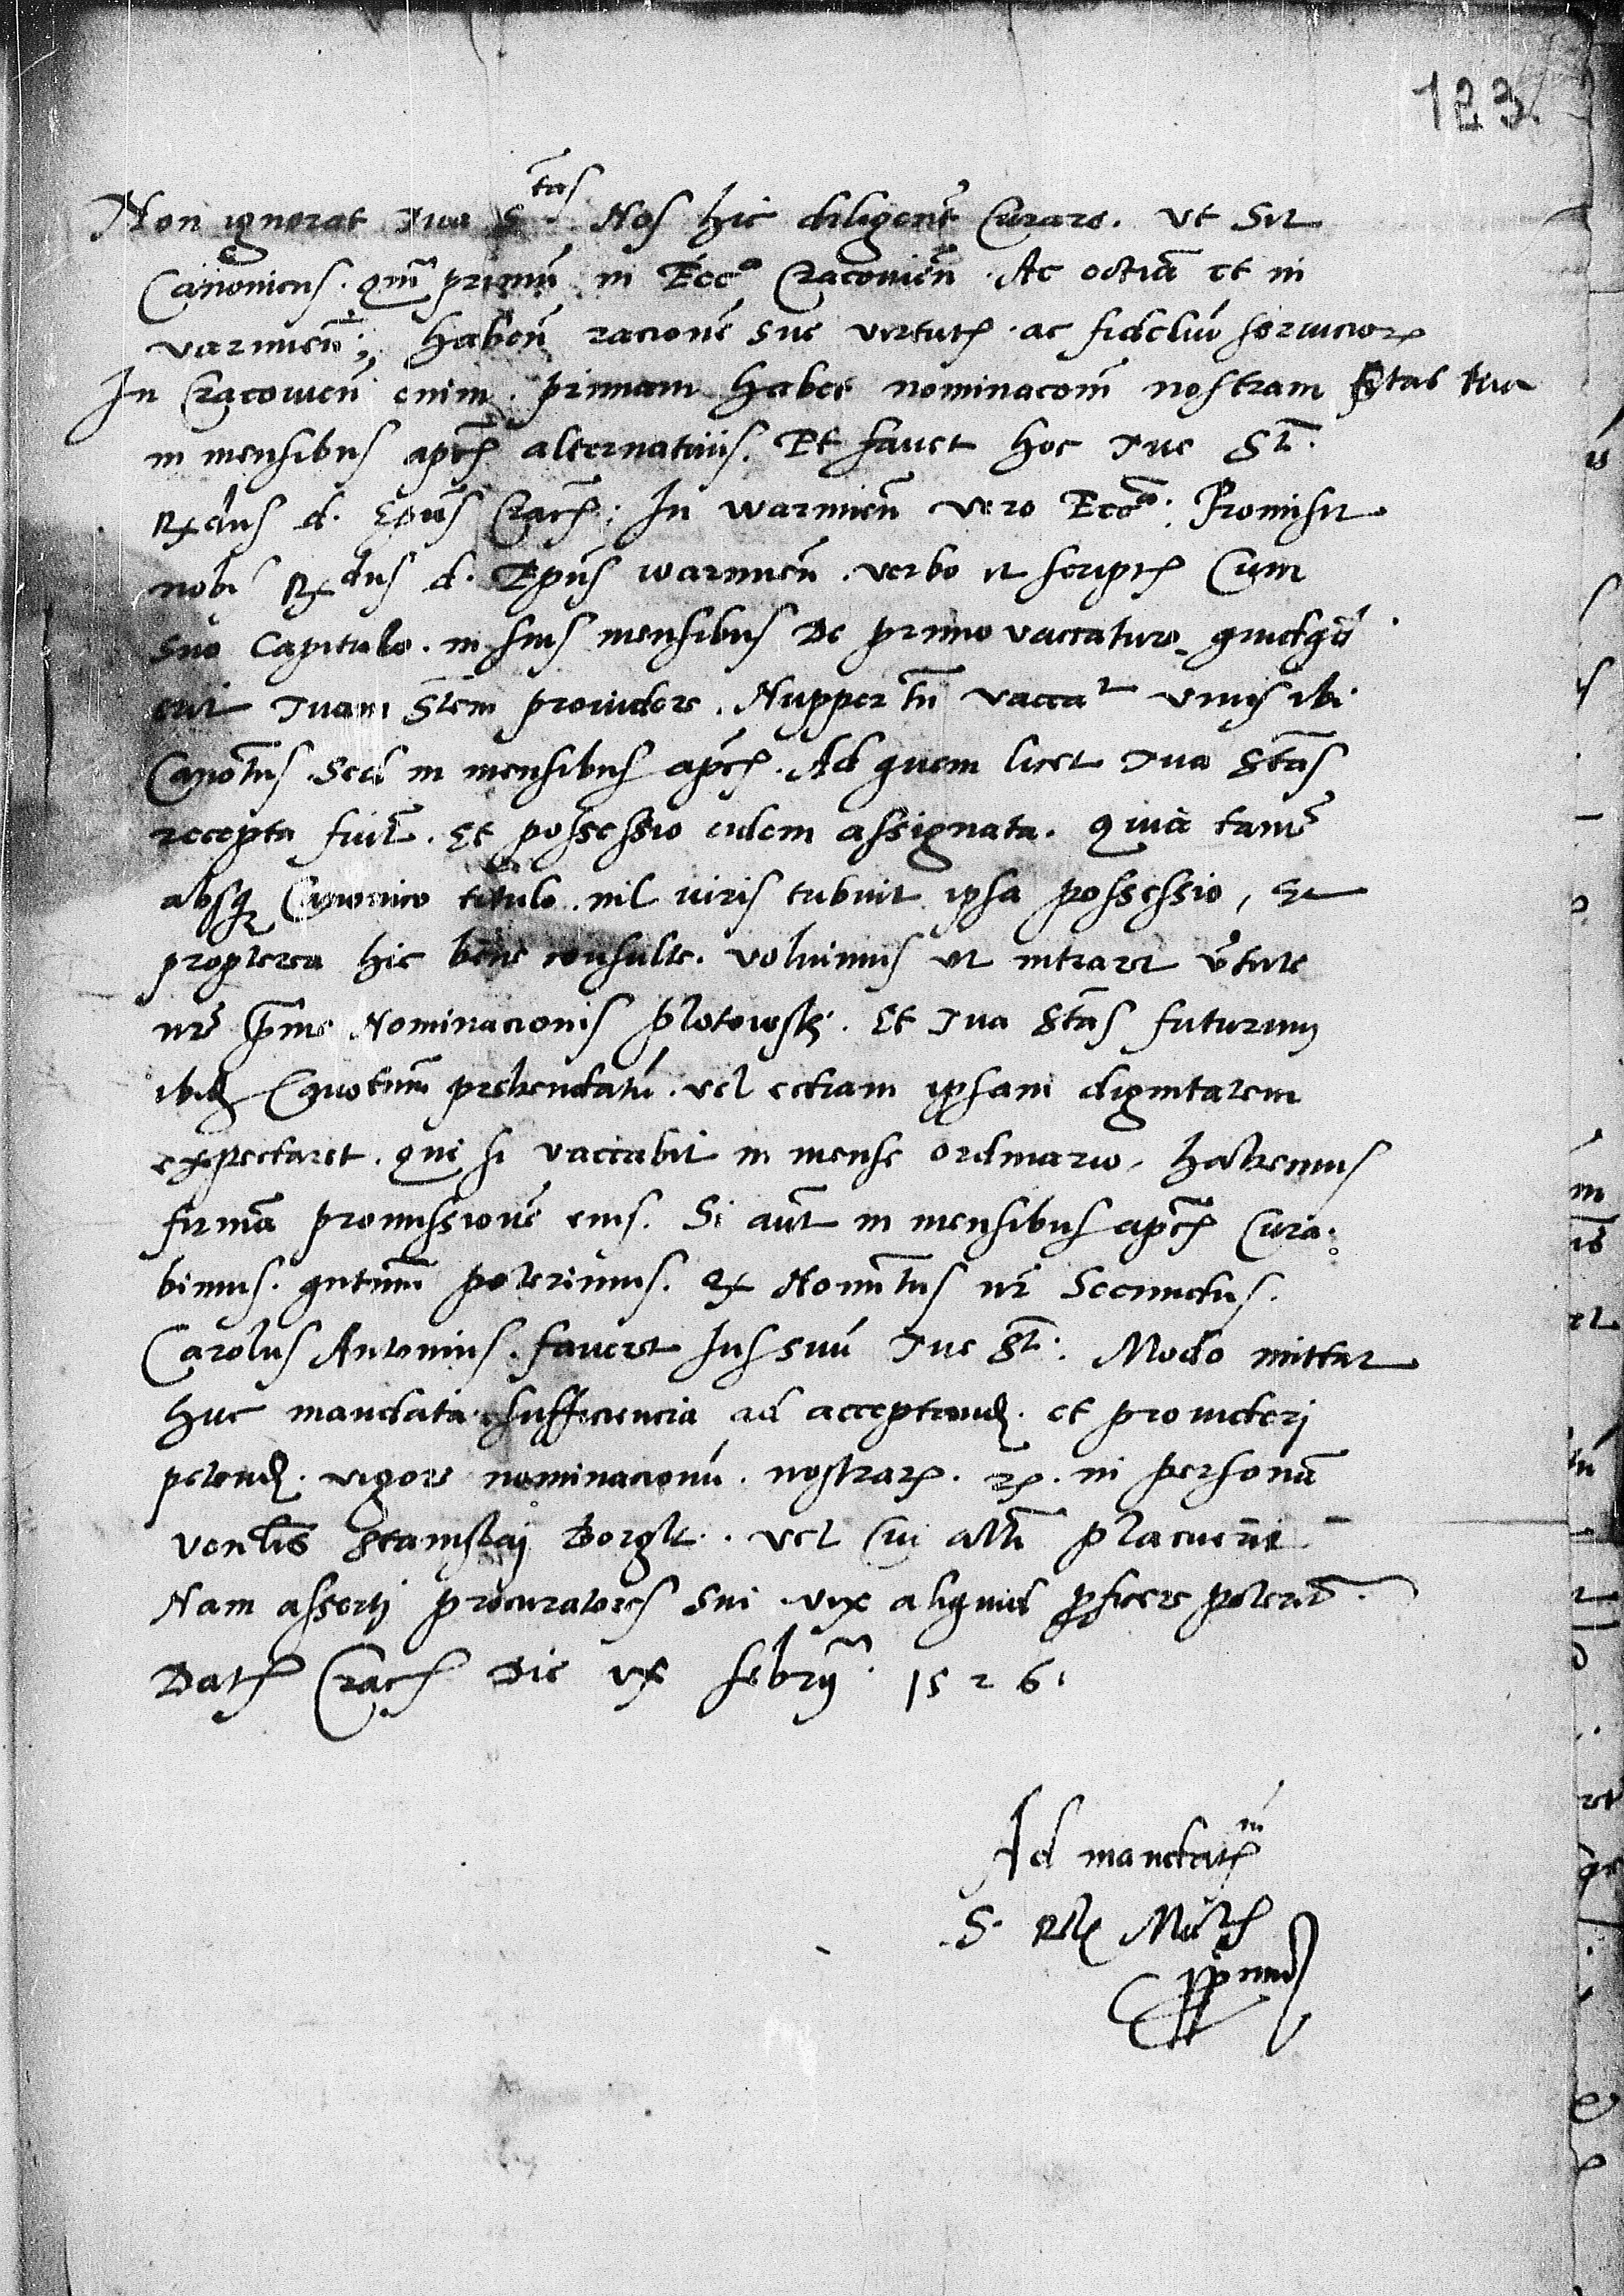 123
Non ignorat Tua S^tas Nos hic diligent̃ Curare. ut Sit
Canonicus. qm̃ primũ in Ecc^a Cracovieñ. Ac ectiã et in
varmieñ; habeñ racionẽ sue virtutꝭ. ac fideliũ serviciorꝫ
In Cracovieñ enim. primam habet nominacoñem nostram S̃tas tua
in mensibus apcꝭ alternativis. Et favet hoc Tue S̃t.
Rx^dus d. Ep̃us Cracꝭ: In warmieñ vero Ecc^a: Promisit
nobis Rx^dus d. Ep̃us warmieñ. verbo et scriptꝭ Cum
suo Capitulo. in suis mensibus De primo vaccaturo
erit Tuam S̃tem providere. Nupper tñ vacca^t unus ibi
Cano^tus. Sed in mensibus apcꝭ. Ad quem licet Tua S̃tas
recepta fuit. Et possessio eidem assignata. Quia tamẽ
absqꝫ Canonico titulo. nil iuris tribuit ipsa possessio, Et
propterea hic bene consulte. voluimus ut intraret ṽtute
nrẽ prime Nominacionis plotowskꝭ. Et Tua S̃tas futurum
ibidꝫ Canotum prebendatũ. vel ectiam ipsam dignitatem
expectaret. que si vaccabit in mense ordinario, habemus
firmã promissionẽ eius. Si aut̃ in mensibus apcꝭ Cura:
bimus. qntum̃ poterimus. Ex Nomĩtus nr̃ Secundus.
Carolus Antonius. faveret Jus suũ Tue S̃t: Modo mittat
huc mandata sufficiencia ad acceptandꝫ. et provideri
petendꝫ. vigore nominacionũ. nostrarꝫ. in personã
venlis Stanislai Borgk. vel Cui alteri placuerit
Nam asserti procuratores sui vix aliquid ꝑficere poterũt.
Datꝭ Cracꝭ Die ix febrỹ. 1526.
Ad mandatꝫ^m
S. Rꝫ Mtꝭ
ppmꝭ